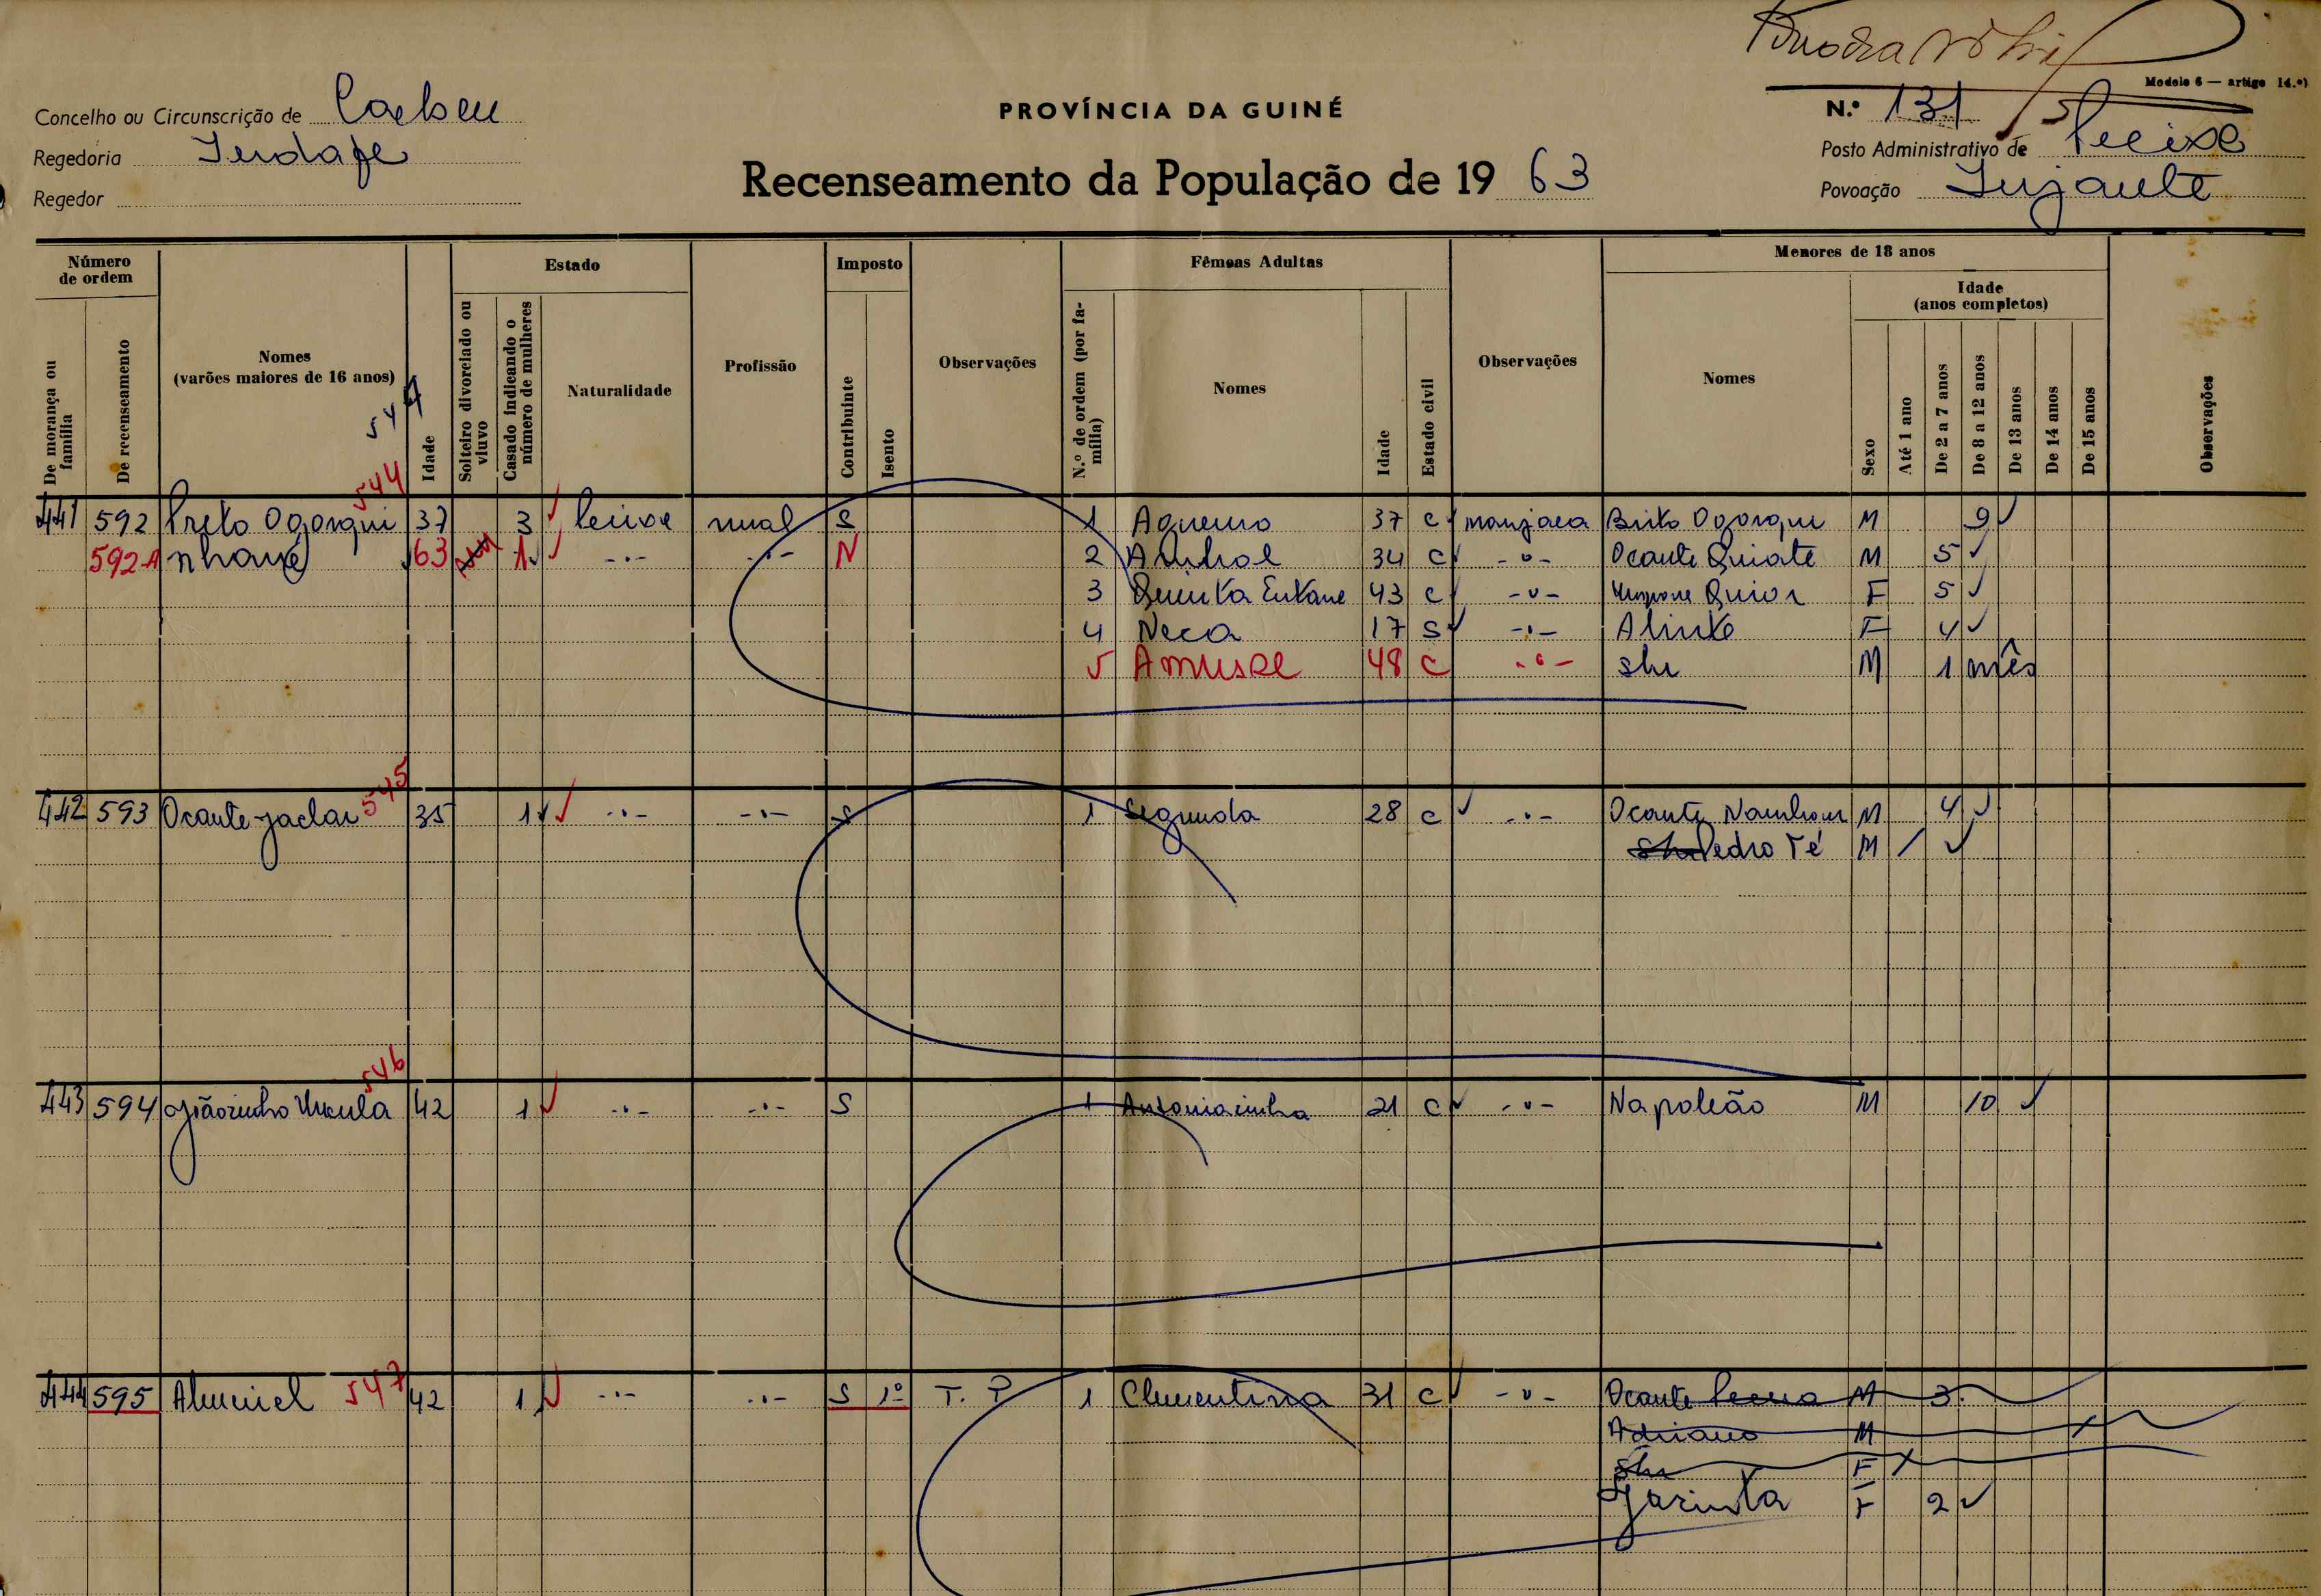 Modelo 6 — artigo 14.º)
Concelho ou Circunscrição de
PROVÍNCIA DA GUINÉ
N.º 131
Regedoria
Posto Administrativo de Pecixe
Regedor
Recenseamento da População de 19 63
Povoação
Número de ordem
Estado
Imposto
Fêmeas Adultas
Menores de 18 anos
Idade (anos completos)
De morança ou família
De recenseamento
Nomes (varões maiores de 16 anos)
Idade
Solteiro divorciado ou viuvo
Casado indicando o número de mulheres
Naturalidade
Profissão
Contribuinte
Isento
Observações
N.º de ordem (por família)
Nomes
Idade
Estado civil
Observações
Nomes
Sexo
Até 1 ano
De 2 a 7 anos
De 8 a 12 anos
De 13 anos
De 14 anos
De 15 anos
Observações
544
544
441 592 Preto Ogorqui 37 3 Pecixe rural S 1 37 C manjaca Brito Ogorqui M 9
592A 63 1 -.- -.- N 2 34 C -.- Ocante Quiate M 5
3 43 C -.- F 5
4 Neca 17 S -.- Alinto F 4
5 Amusel 48 C -.- shr M 1 mês
545
442 593 Ocante Jaclai 35 1 -.- -.- S 1 Segunda 28 C -.- Ocante M 4
Pedro Té M /
546
443 594 42 1 -.- -.- S 1 Antoniazinha 21 C -.- Napoleão M 10
444 595 547 42 1 -.- -.- S 1º T. P 1 Clementina 31 C -.- Ocante M 3
Adriano M
shr F
Jarinta F 2